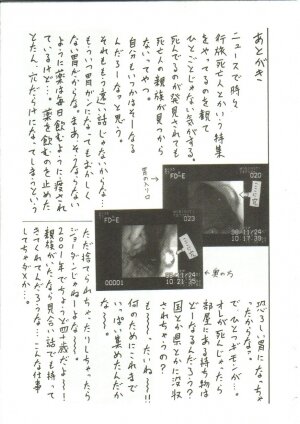 あとがき
ニュースで時々
行旅死亡人とかいう特集
をやってるのを観て
ひとごとじゃない気がする。
死んでるのが発見されても
死亡人の親族が見つから
ないってやつ。
自分もいつかはそーなる
んだろーな。と思う。
それももう遠い話じゃないかんな…
もういつ胃ガンになってもおかしく
ない胃だからな。まあそうならない
ように薬は毎日飲むように療され
ているけど…。薬を飲むのを止めた
とたん、穴だらけになってしまうという
恐ろしい胃になっちゃ
ったからなっ。
でひとつギモンが…。
オレが死んじゃったら
部屋にある持ち物は
どーなるんだろう？
国とか県とかに没収
されちゃうの？
も〜〜、たいね〜!!
何のためにこれまで
いっぱい集めたんだか
な〜。
ただ捨てられちゃったりしちゃったら
ジョーダンじゃねーよな〜！
2001年でちょーど四十歳だよ〜！
親族がいたなら見合い話でも持って
きてくれてんだろうな。こんな仕事
してちゃダメか…。
胃の入り口
FD-E
020
023
FD-E
00001
10/24
10:15:39
11/24
10:17:39
←胃の穴